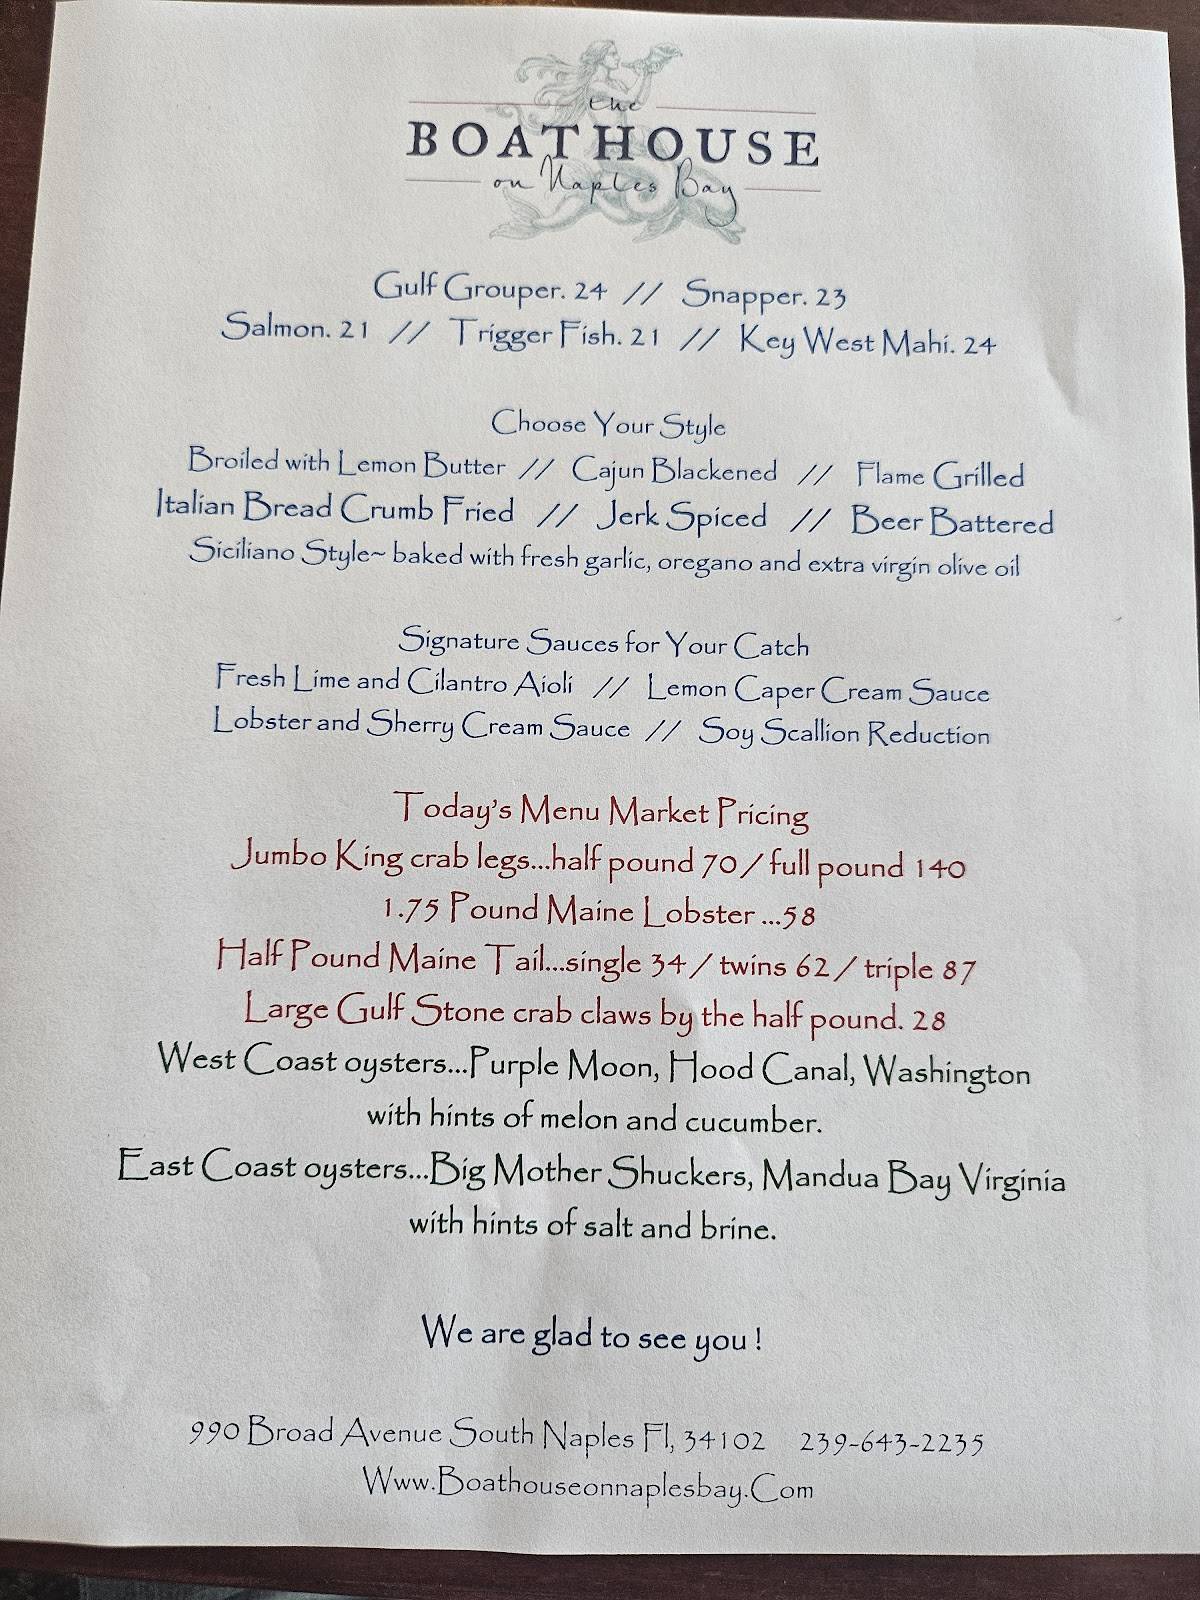 the
BOATHOUSE
on Naples Bay
Gulf Grouper. 24 // Snapper. 23
Salmon. 21 // Trigger Fish. 21 // Key West Mahi. 24
Choose Your Style
Broiled with Lemon Butter // Cajun Blackened // Flame Grilled
Italian Bread Crumb Fried // Jerk Spiced // Beer Battered
Siciliano Style~ baked with fresh garlic, oregano and extra virgin olive oil
Signature Sauces for Your Catch
Fresh Lime and Cilantro Aioli // Lemon Caper Cream Sauce
Lobster and Sherry Cream Sauce // Soy Scallion Reduction
Today's Menu Market Pricing
Jumbo King crab legs...half pound 70 / full pound 140
1.75 Pound Maine Lobster ...58
Half Pound Maine Tail...single 34 / twins 62 / triple 87
Large Gulf Stone crab claws by the half pound. 28
West Coast oysters...Purple Moon, Hood Canal, Washington
with hints of melon and cucumber.
East Coast oysters...Big Mother Shuckers, Mandua Bay Virginia
with hints of salt and brine.
We are glad to see you !
990 Broad Avenue South Naples Fl, 34102 239-643-2235
Www.Boathouseonnaplesbay.Com